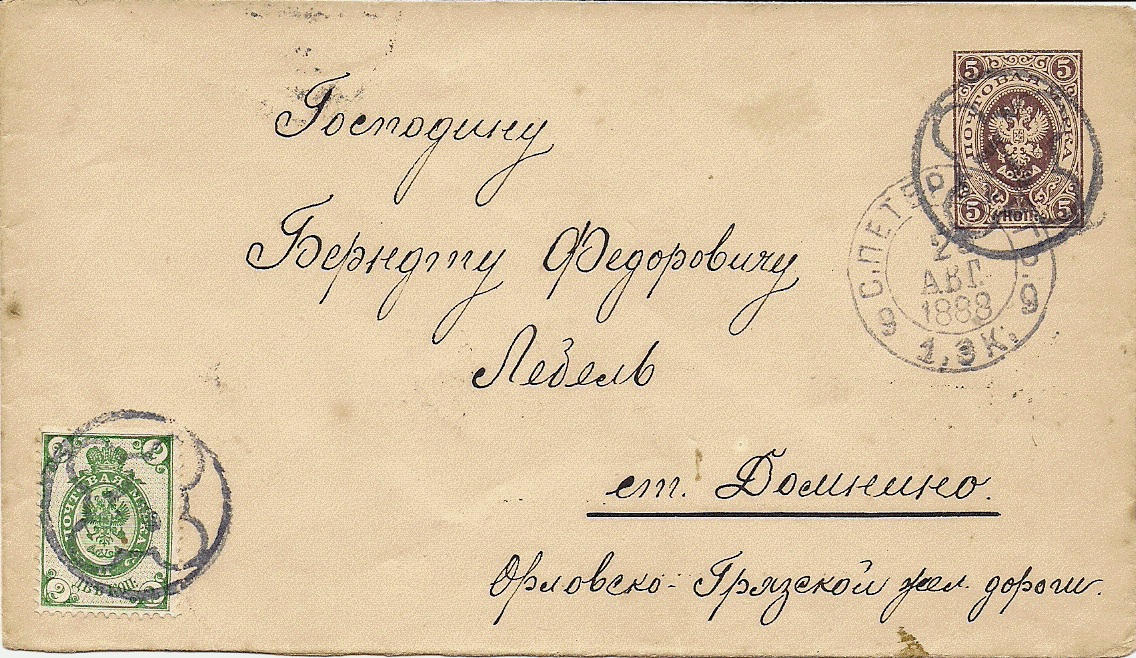 5 5
ПОЧТОВАЯ МАРКА
5 КОП. 5
Господину
Берндту Федоровичу
Лебель
ст. Домнино.
Орловско-Грязской жел. дороги.
С.ПЕТЕР
АВГ.
1888
9 1. ЭК. 9
2 2
ПОЧТОВАЯ МАРКА
2 ДВѢ КОП. 2